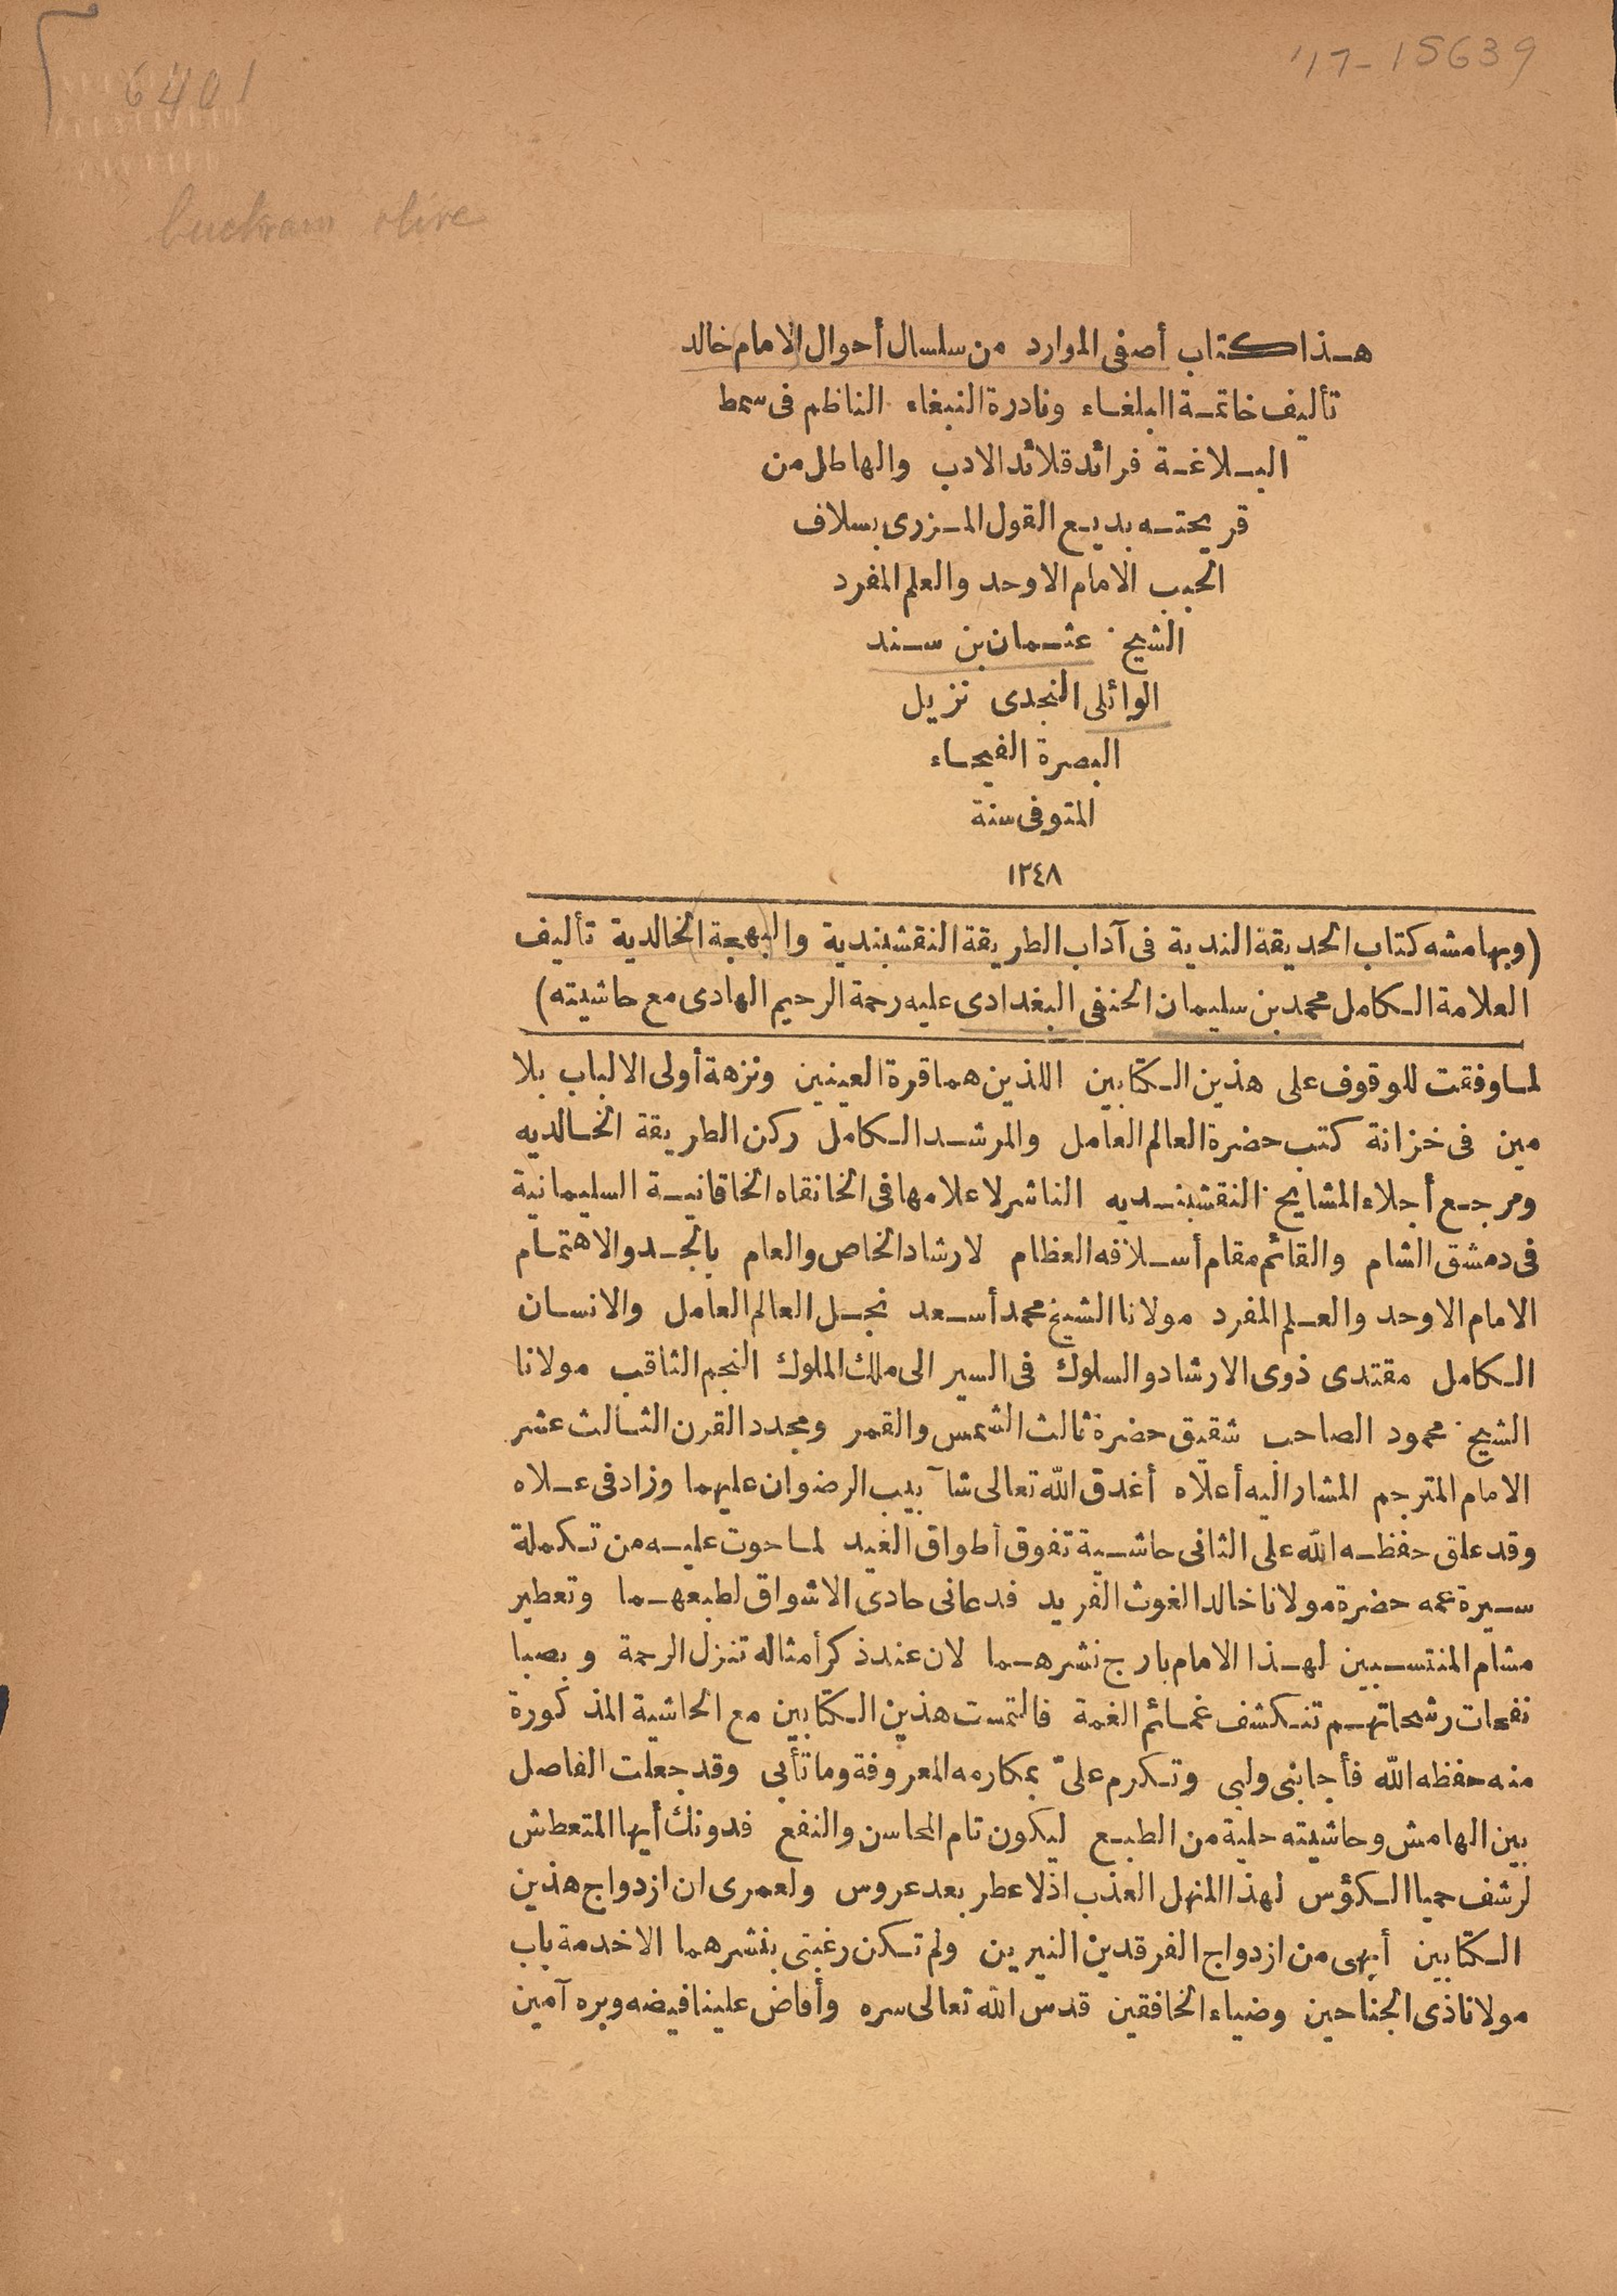 '17-15639
6401
buckram olive
هذا كتاب أصفى الموارد من سلسال أحوال الامام خالد
تأليف خاتمة البلغاء ونادرة النبغاء الناظم فى سمط
البلاغة فرائد قلائد الادب والهاطل من
قريحته بديع القول المزرى بسلاف
الحبب الامام الاوحد والعلم المفرد
الشيخ عثمان بن سند
الوائلى النجدى نزيل
البصرة الفيحاء
المتوفى سنة
١٢٤٨
(وبهامشه كتاب الحديقة الندية فى آداب الطريقة النقشبندية والبهجة الخالدية تأليف
العلامة الكامل محمد بن سليمان الحنفى البغدادى عليه رحمة الرحيم الهادى مع حاشيته)
لما وفقت للوقوف على هذين الكتابين اللذين هما قرة العينين ونزهة أولى الالباب بلا
مين فى خزانة كتب حضرة العالم العامل والمرشد الكامل ركن الطريقة الخالديه
ومرجع أجلاء المشايخ النقشبنديه الناشر لاعلامها فى الخانقاه الخاقانية السليمانية
فى دمشق الشام والقائم مقام أسلافه العظام لارشاد الخاص والعام بالجد والاهتمام
الامام الاوحد والعلم المفرد مولانا الشيخ محمد أسعد نجل العالم العامل والانسان
الكامل مقتدى ذوى الارشاد والسلوك فى السير الى ملك الملوك النجم الثاقب مولانا
الشيخ محمود الصاحب شقيق حضرة ثالث الشمس والقمر ومجدد القرن الثالث عشر
الامام المترجم المشار اليه أعلاه أغدق الله تعالى شآبيب الرضوان عليهما وزاد فى علاه
وقد علق حفظه الله على الثانى حاشية تفوق أطواق الغيد لما حوت عليه من تكملة
سيرة عمه حضرة مولانا خالد الغوث الفريد فدعانى حادى الاشواق لطبعهما وتعطير
مشام المنتسبين لهذا الامام بارج نشرهما لان عند ذكر أمثاله تنزل الرحمة وبصبا
نفحات رشحاتهم تنكشف غمائم الغمة فالتمست هذين الكتابين مع الحاشية المذكورة
منه حفظه الله فأجابنى ولبى وتكرم علىّ بمكارمه المعروفة وما تأبى وقد جعلت الفاصل
بين الهامش وحاشيته حلية من الطبع ليكون تام المحاسن والنفع فدونك أيها المتعطش
لرشف حميا الكؤس لهذا المنهل العذب اذلا عطر بعد عروس ولعمرى ان ازدواج هذين
الكتابين أبهى من ازدواج الفرقدين النيرين ولم تكن رغبتى بنشرهما الا خدمة باب
مولانا ذى الجناحين وضياء الخافقين قدس الله تعالى سره وأفاض علينا فيضه وبره آمين